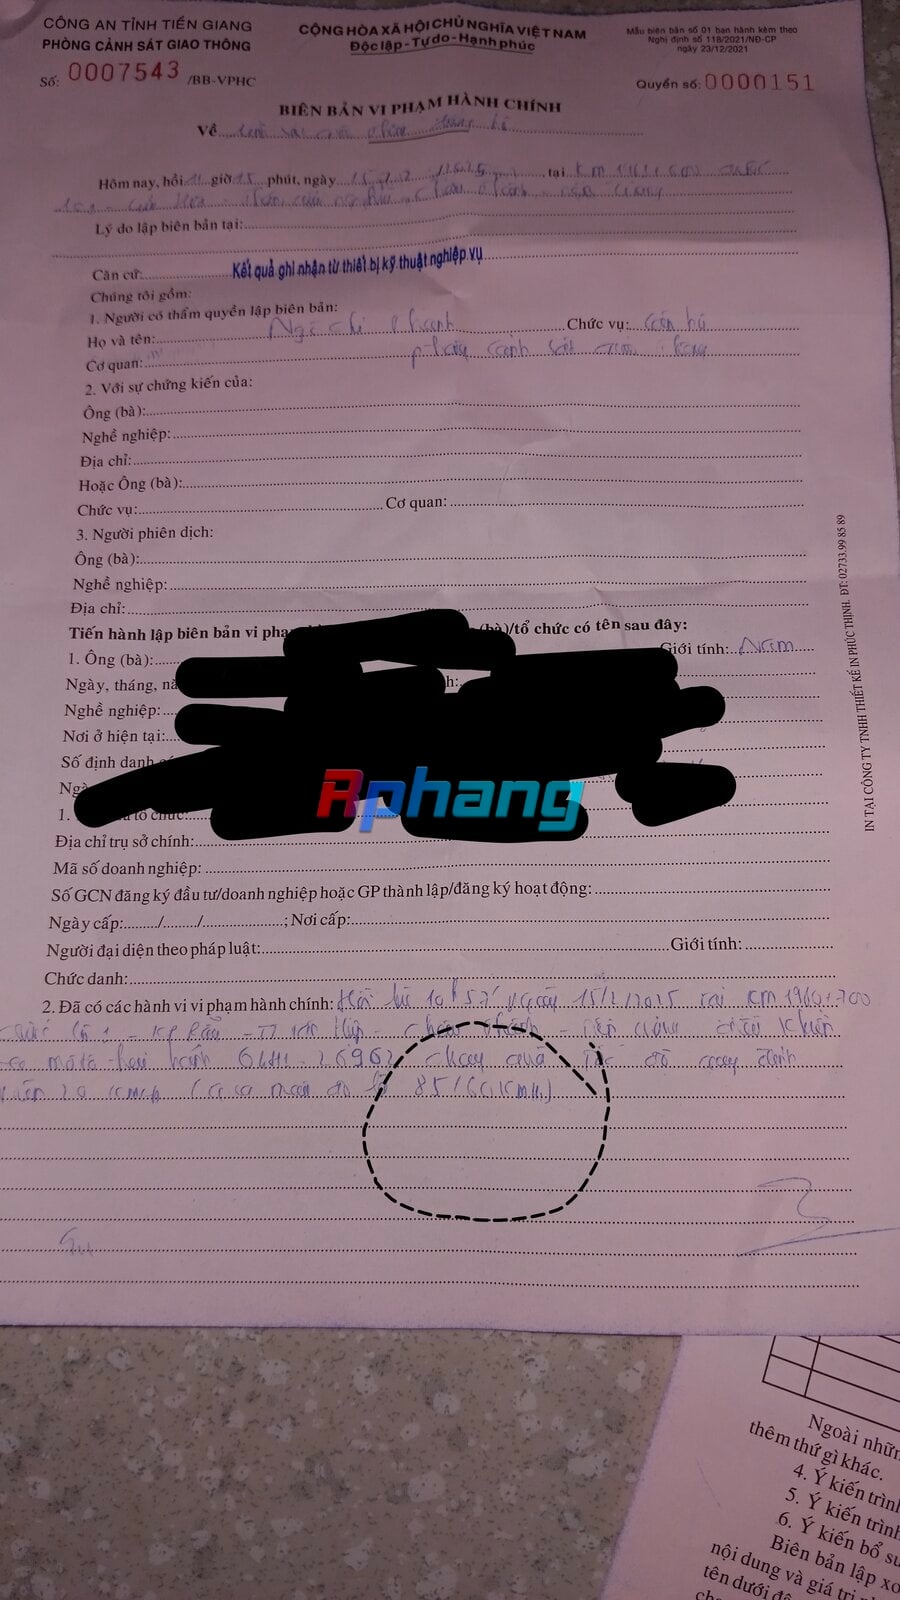 CÔNG AN TỈNH TIỀN GIANG
PHÒNG CẢNH SÁT GIAO THÔNG
Số: 0007543 /BB-VPHC
CỘNG HÒA XÃ HỘI CHỦ NGHĨA VIỆT NAM
Độc lập - Tự do - Hạnh phúc
Mẫu biên bản số 01 ban hành kèm theo
Nghị định số 118/2021/NĐ-CP
ngày 23/12/2021
Quyển số: 0000151
BIÊN BẢN VI PHẠM HÀNH CHÍNH
Về
Hôm nay, hồi 11 giờ 15 phút, ngày 15/2/2025, tại Km
Lý do lập biên bản tại:
Căn cứ: Kết quả ghi nhận từ thiết bị kỹ thuật nghiệp vụ
Chúng tôi gồm:
1. Người có thẩm quyền lập biên bản:
Họ và tên: Chức vụ: Cán bộ
Cơ quan: phòng cảnh sát giao thông
2. Với sự chứng kiến của:
Ông (bà):
Nghề nghiệp:
Địa chỉ:
Hoặc Ông (bà):
Chức vụ: Cơ quan:
3. Người phiên dịch:
Ông (bà):
Nghề nghiệp:
Địa chỉ:
Tiến hành lập biên bản vi phạm (bà)/tổ chức có tên sau đây:
1. Ông (bà): Giới tính: Nam
Ngày, tháng,
Nghề nghiệp:
Nơi ở hiện tại:
Số định danh
Rphang
1. tổ chức:
Địa chỉ trụ sở chính:
Mã số doanh nghiệp:
Số GCN đăng ký đầu tư/doanh nghiệp hoặc GP thành lập/đăng ký hoạt động:
Ngày cấp: / / ; Nơi cấp:
Người đại diện theo pháp luật: Giới tính:
Chức danh:
2. Đã có các hành vi vi phạm hành chính: Hồi lúc 10h57' ngày 15/2/2025 tại Km 1960+700
Quốc lộ 1 - Châu Thành - Tiền Giang điều khiển
xe mô tô hai bánh chạy quá tốc độ quy định
trên 20 km/h 85/60 km/h)
IN TẠI CÔNG TY TNHH THIẾT KẾ IN PHÚC THỊNH. ĐT: 02733.99 85 89
Ngoài những
thêm thứ gì khác.
4. Ý kiến trình
5. Ý kiến trình
6. Ý kiến bổ su
Biên bản lập xo
nội dung và giá trị
tên dưới